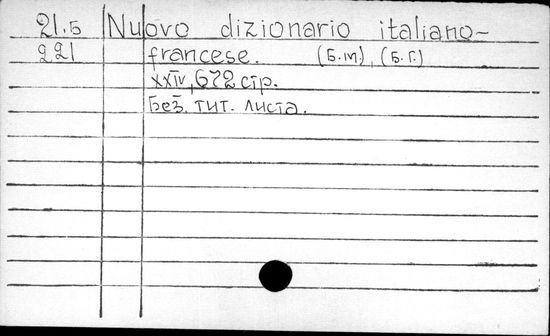 21.5 Nuovo dizionario italiano-
221 francese. (Б.м.), (Б.Г.)
XXIV, 672 стр.
Без. тит. листа.